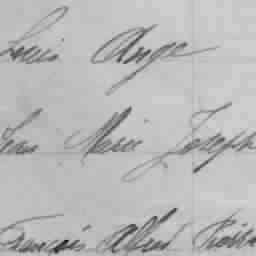 Louis Ange
Jean Marie Joseph
François Alfred